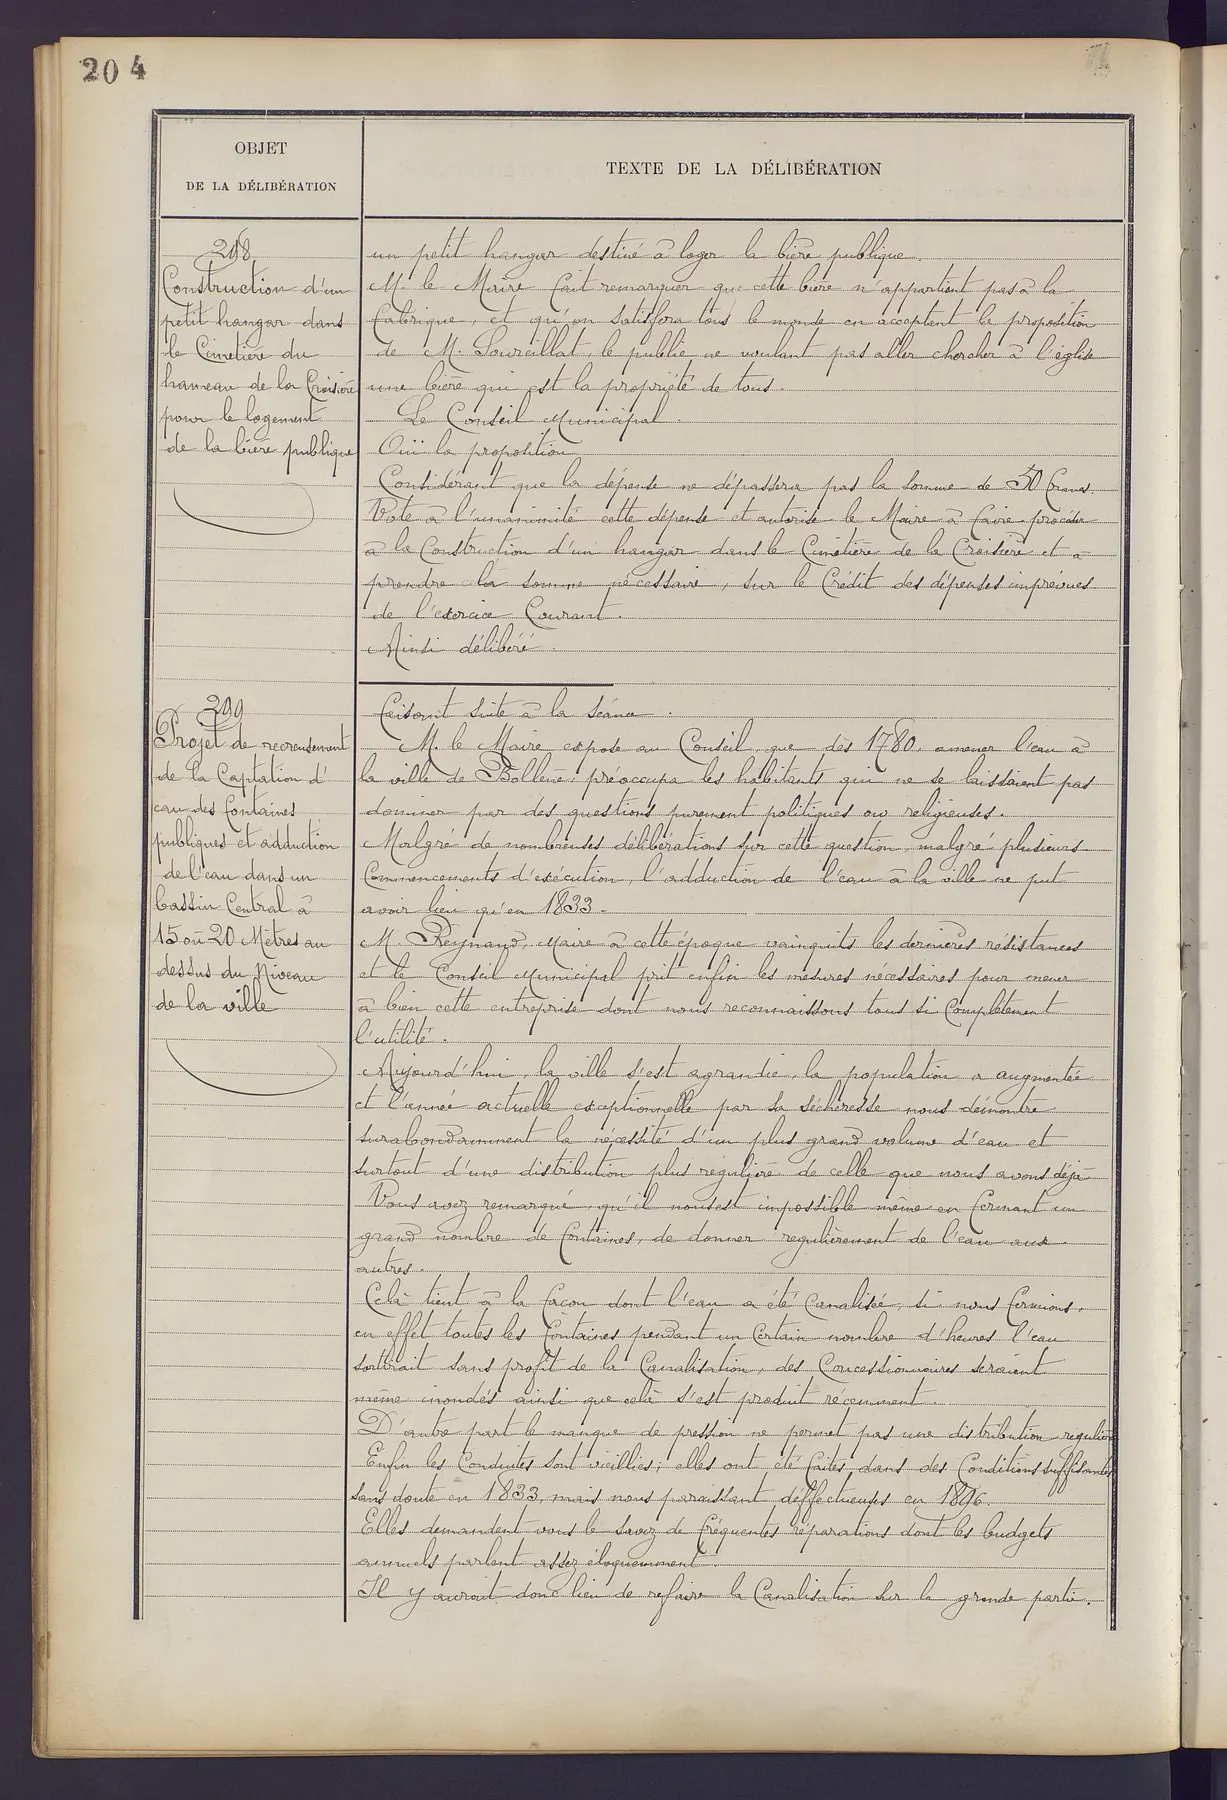 204
OBJET
DE LA DÉLIBÉRATION
TEXTE DE LA DÉLIBÉRATION
298
Construction d'un
petit hangar dans
le Cimetière du
hameau de la Croisière
pour le logement
de la bière publique
un petit hangar destiné à loger la bière publique.
M. le Maire fait remarquer que cette bière n'appartient pas à la
fabrique, et qu'on satisfera tous le monde en acceptant la proposition
de M. Sourcillat, le public ne voulant pas aller chercher à l'église
une bière qui est la propriété de tous.
Le Conseil Municipal.
Ouï la proposition
Considérant que la dépense ne dépassera pas la somme de 50 francs.
Vote à l'unanimité cette dépense et autorise le Maire à faire procéder
à la Construction d'un hangar dans le Cimetière de la Croisière et à
prendre la somme nécessaire, sur le Crédit des dépenses imprévues
de l'exercice Courant.
Ainsi délibéré.
299
Projet de recreusement
de la Captation d'
eau des fontaines
publiques et adduction
de l'eau dans un
bassin Central à
15 où 20 Mètres au
dessus du Niveau
de la ville
Faisant suite à la séance.
M. le Maire expose au Conseil que dès 1780, amener l'eau à
la ville de Bollène, préoccupa les habitants qui ne se laissaient pas
dominer par des questions purement politiques ou religieuses.
Malgré de nombreuses délibérations sur cette question, malgré plusieurs
Commencements d'exécution, l'adduction de l'eau à la ville ne put
avoir lieu qu'en 1833.
M. Reynaud, Maire à cette époque vainquits les dernières résistances
et le Conseil Municipal prit enfin les mesures nécessaires pour mener
à bien cette entreprise dont nous reconnaissons tous si Complètement
l'utilité.
Aujourd'hui, la ville s'est agrandie, la population a augmentée
et l'année actuelle exceptionnelle par sa sécheresse nous démontre
surabondamment la nécessité d'un plus grand volume d'eau et
surtout d'une distribution plus régulière de celle que nous avons déjà
Vous avez remarqué, qu'il nous est impossible même en fermant un
grand nombre de fontaines, de donner régulièrement de l'eau aux
autres.
Celà tient à la façon dont l'eau a été Canalisée, si nous fermions,
en effet toutes les fontaines pendant un Certain nombre d'heures l'eau
sortirait sans profit de la Canalisation, des Concessionnaires seraient
même inondés ainsi que celà s'est produit récemment.
D'autre part le manque de pression ne permet pas une distribution régulière
Enfin les Conduites sont vieillies; elles ont été faites dans des Conditions suffisantes
sans doute en 1833, mais nous paraissant déffectueuses en 1896.
Elles demandent vous le savez de fréquentes réparations dont les budgets
annuels parlent assez éloquemment.
Il y aurait donc lieu de refaire la Canalisation sur la grande partie.